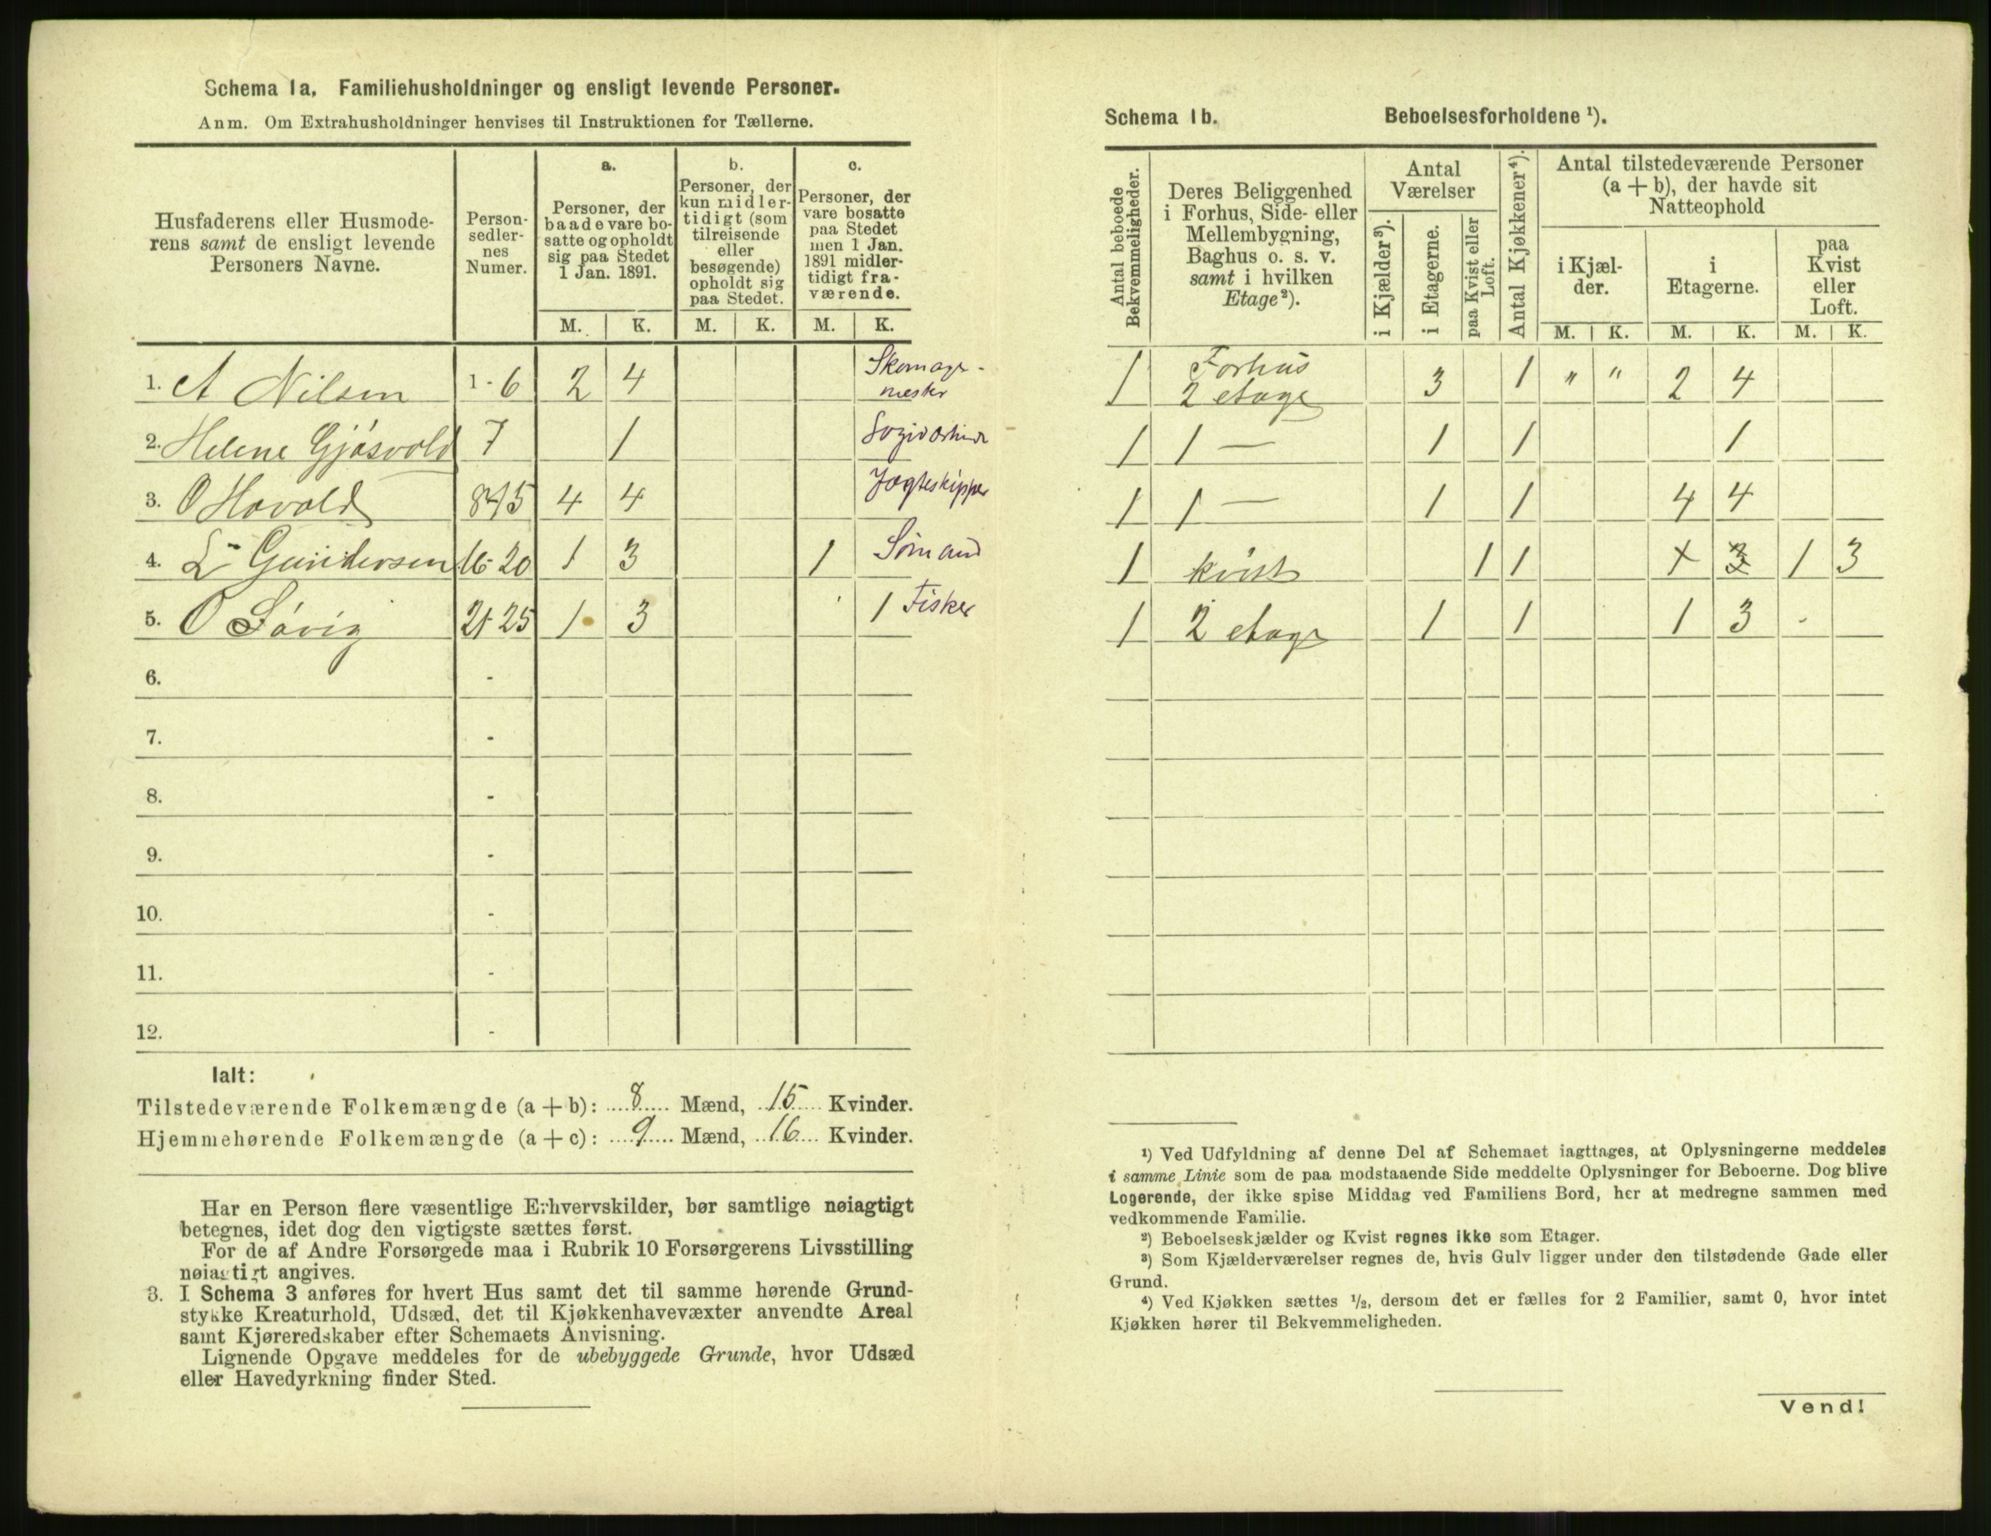 Schema 1a. Familiehusholdninger og ensligt levende Personer.
Anm. Om Extrahusholdninger henvises til Instruktionen for Tællerne.
Husfaderens eller Husmode-
rens samt de ensligt levende
Personers Navne.
Person-
sedler-
nes
Numer.
a.
Personer, der
baade vare bo-
satte og opholdt
sig paa Stedet
1 Jan. 1891.
b.
Personer, der
kun midler-
tidigt (som
tilreisende
eller
besøgende)
opholdt sig
paa Stedet.
c.
Personer, der
vare bosatte
paa Stedet
men 1 Jan.
1891 midler-
tidigt fra-
værende.
M. K. M. K. M. K.
1. A Nilsen 1-6 2 4 Skomager-
mester
2. Helene Gjøsvold 7 1
3. O Hovold 8-15 4 4 Jægteskipper
4. L Gundersen 16-20 1 3 1 Sømand
5. O Søvig 21-25 1 3 1 Fisker
6. -
7. -
8. -
9. -
10. -
11. -
12. -
Ialt:
Tilstedeværende Folkemængde (a + b): 8 Mænd, 15 Kvinder.
Hjemmehørende Folkemængde (a + c): 9 Mænd, 16 Kvinder.
Har en Person flere væsentlige Erhvervskilder, bør samtlige nøiagtigt
betegnes, idet dog den vigtigste sættes først.
For de af Andre Forsørgede maa i Rubrik 10 Forsørgerens Livsstilling
nøiagtigt angives.
3. I Schema 3 anføres for hvert Hus samt det til samme hørende Grund-
stykke Kreaturhold, Udsæd, det til Kjøkkenhavevæxter anvendte Areal
samt Kjøreredskaber efter Schemaets Anvisning.
Lignende Opgave meddeles for de ubebyggede Grunde, hvor Udsæd
eller Havedyrkning finder Sted.
Schema 1b. Beboelsesforholdene ¹).
Antal beboede
Bekvemmeligheder.
Deres Beliggenhed
i Forhus, Side- eller
Mellembygning,
Baghus o. s. v.
samt i hvilken
Etage²).
Antal
Værelser
i Kjælder³).
i Etagerne.
paa Kvist eller
Loft.
Antal Kjøkkener⁴).
Antal tilstedeværende Personer
(a + b), der havde sit
Natteophold
i Kjæl-
der.
i
Etagerne.
paa
Kvist
eller
Loft.
M. K. M. K. M. K.
1 Forhus
2 etage 3 1 " " 2 4
1 1 — 1 1 1
1 1 — 1 1 4 4
1 kvist 1 1 1 3
1 2 etage 1 1 1 3
¹) Ved Udfyldning af denne Del af Schemaet iagttages, at Oplysningerne meddeles
i samme Linie som de paa modstaaende Side meddelte Oplysninger for Beboerne. Dog blive
Logerende, der ikke spise Middag ved Familiens Bord, her at medregne sammen med
vedkommende Familie.
²) Beboelseskjælder og Kvist regnes ikke som Etager.
³) Som Kjælderværelser regnes de, hvis Gulv ligger under den tilstødende Gade eller
Grund.
⁴) Ved Kjøkken sættes ½, dersom det er fælles for 2 Familier, samt 0, hvor intet
Kjøkken hører til Bekvemmeligheden.
Vend!